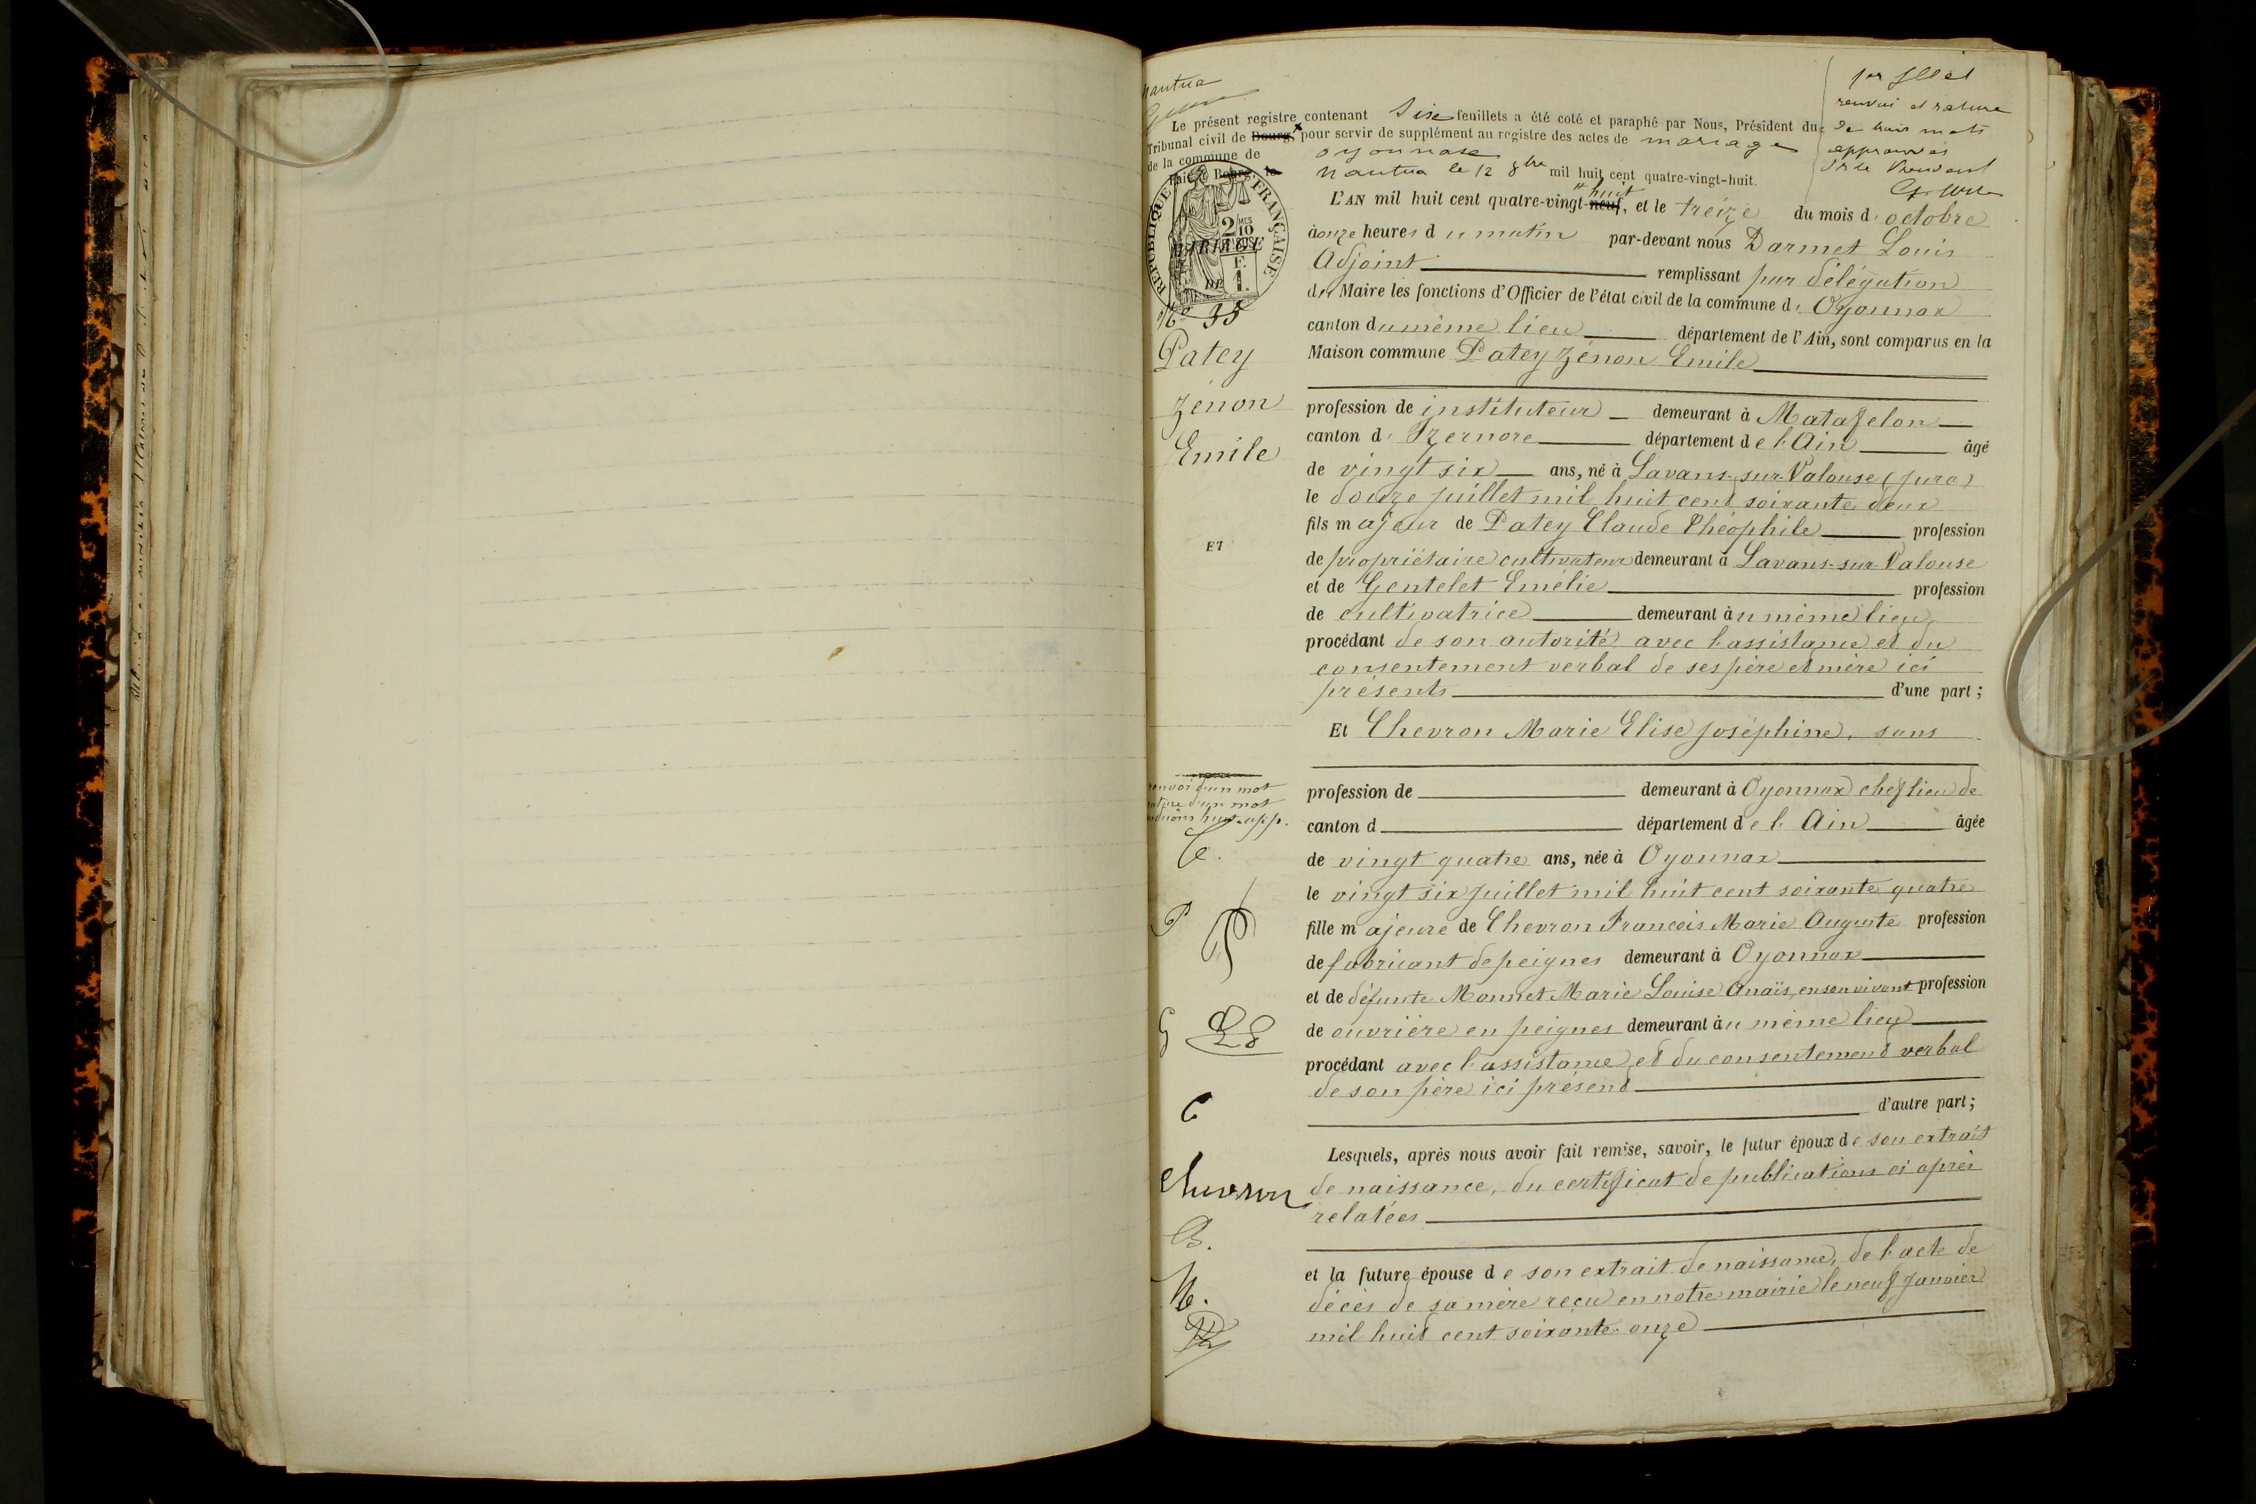 nantua
Le présent registre contenant Six feuillets a été coté et paraphé par Nous, Président du
Tribunal civil de Bourg, pour servir de supplément au registre des actes de mariage
de la commune de oyonnax
Fait à Bourg, le nantua le 12 8bre mil huit cent quatre-vingt-huit.
1er feuillet
renvoi et rature
de trois mots
approuvés
RÉPUBLIQUE FRANÇAISE
2/10
F.
1.
L'AN mil huit cent quatre-vingt-neuf, huit et le treize du mois d'octobre
à onze heures du matin par-devant nous Darmet Louis
Adjoint remplissant par délégation
du Maire les fonctions d'Officier de l'état civil de la commune d'Oyonnax
canton du même lieu département de l'Ain, sont comparus en la
Maison commune Patey Zénon Emile
profession de instituteur demeurant à Matafelon
canton d'Izernore département de l'Ain âgé
de vingt six ans, né à Lavans-sur-Valouse (Jura)
le douze juillet mil huit cent soixante deux
fils majeur de Patey Claude Théophile profession
de propriétaire cultivateur demeurant à Lavans-sur-Valouse
et de Gentelet Emélie profession
de cultivatrice demeurant au même lieu
procédant de son autorité avec l'assistance et du
consentement verbal de ses père et mère ici
présents d'une part ;
Et Chevron Marie Elise Joséphine, sans
profession de demeurant à Oyonnax chef lieu de
canton d département de l'Ain âgée
de vingt quatre ans, née à Oyonnax
le vingt six juillet mil huit cent soixante quatre
fille majeure de Chevron François Marie Auguste profession
de fabricant de peignes demeurant à Oyonnax
et de défunte Monnet Marie Louise Anaïs, en son vivant profession
de ouvrière en peignes demeurant au même lieu
procédant avec l'assistance et du consentement verbal
de son père ici présent
d'autre part ;
Lesquels, après nous avoir fait remise, savoir, le futur époux de son extrait
de naissance, du certificat de publications ci après
relatées
et la future épouse de son extrait de naissance, de l'acte de
décès de sa mère reçu en notre mairie le neuf janvier
mil huit cent soixante-onze
MARIAGE
DE
No 35
Patey
Zénon
Emile
ET
renvoi d'un mot
rature d'un mot
huit app.
C.
P
G
C
Chevron
B.